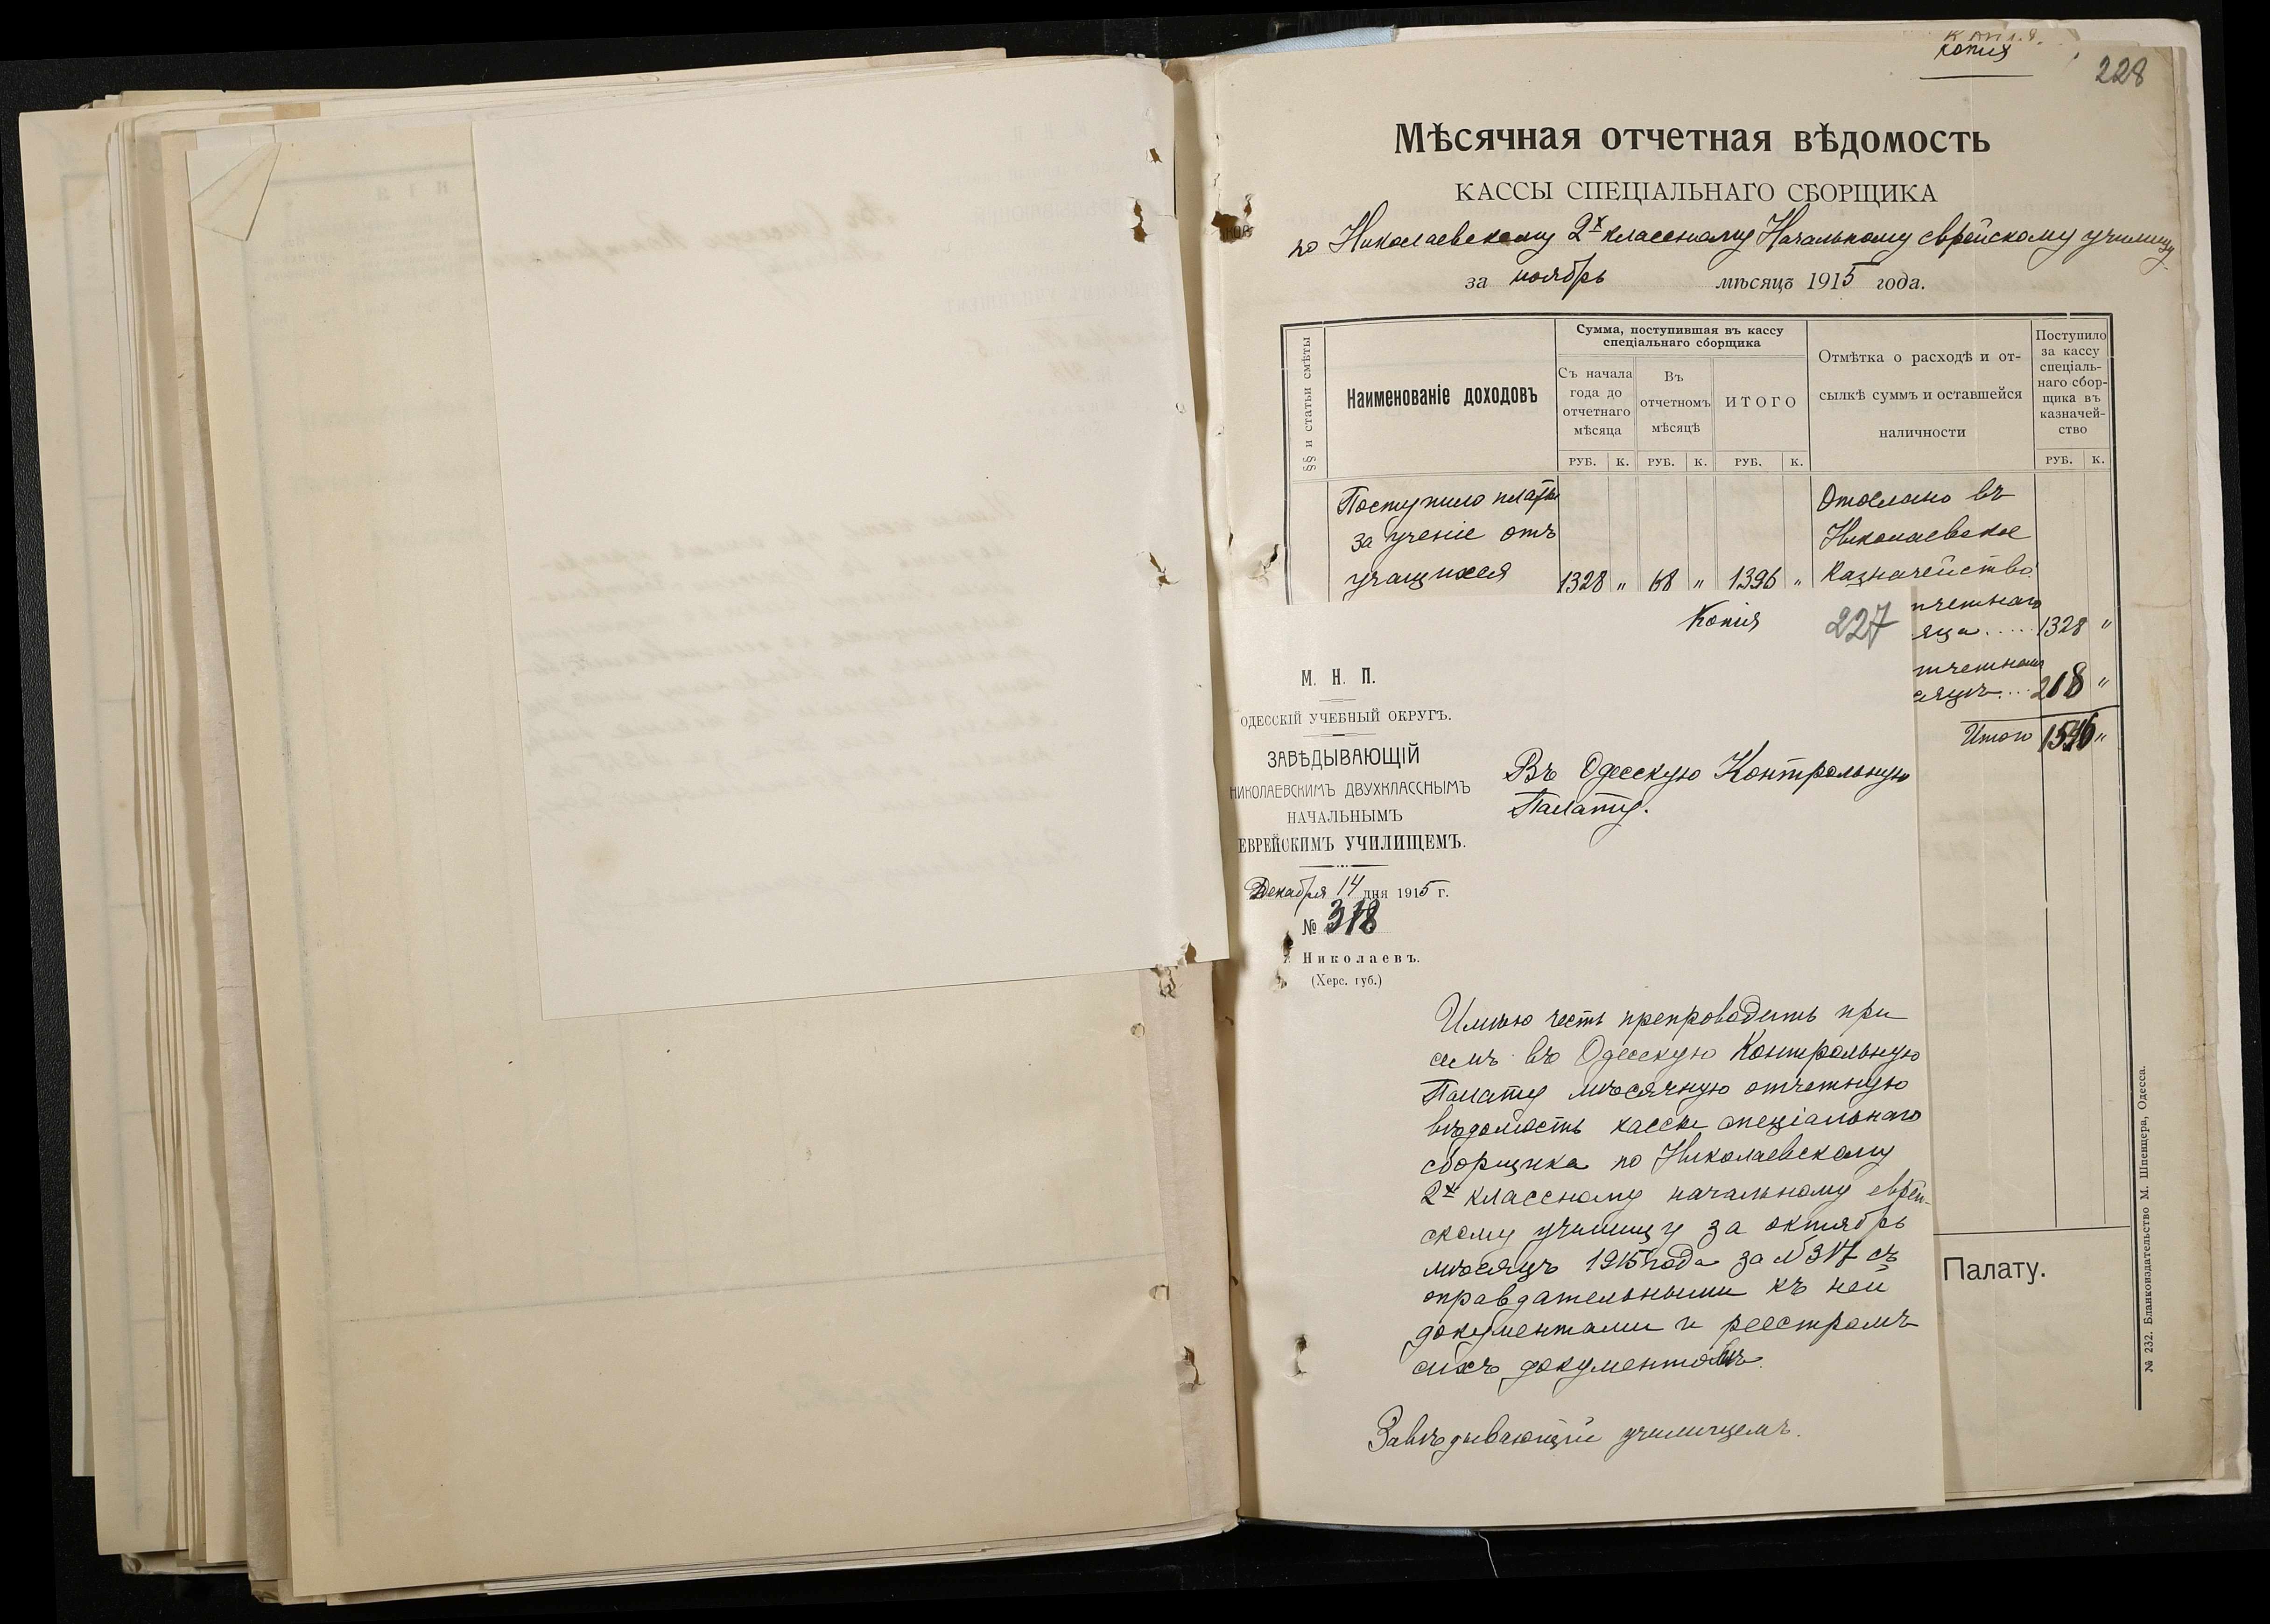 копія
228
Мѣсячная отчетная вѣдомость
КАССЫ СПЕЦІАЛЬНАГО СБОРЩИКА
по Николаевскому 2х классному Начальному еврейскому училищу
за ноябрь мѣсяцъ 1915 года.
§§ и статьи смѣты
Наименованіе доходовъ
Сумма, поступившая въ кассу
спеціальнаго сборщика
Съ начала
года до
отчетнаго
мѣсяца
Въ
отчетномъ
мѣсяцѣ
ИТОГО
Отмѣтка о расходѣ и от-
сылкѣ суммъ и оставшейся
наличности
Поступило
за кассу
спеціаль-
наго сбор-
щика въ
казначей-
ство
РУБ. К. РУБ. К. РУБ. К. РУБ. К.
Поступило платы
за ученіе отъ
учащихся 1328 „ 68 „ 1396 „
Отослано въ
Николаевское
Казначейство
четнаго
яца ..... 1328 „
тчетномъ
сяцѣ ... 218 „
Итого 1546 „
Копія
227
М. Н. П.
ОДЕССКІЙ УЧЕБНЫЙ ОКРУГЪ.
ЗАВѢДЫВАЮЩІЙ
НИКОЛАЕВСКИМЪ ДВУХКЛАССНЫМЪ
НАЧАЛЬНЫМЪ
ЕВРЕЙСКИМЪ УЧИЛИЩЕМЪ.
Декабря 14 дня 1915 г.
№ 318
г. Николаевъ.
(Херс. губ.)
Въ Одесскую Контрольную
Палату.
Имѣю честь препроводить при
семъ въ Одесскую Контрольную
Палату мѣсячную отчетную
вѣдомость кассы спеціальнаго
сборщика по Николаевскому
2х классному начальному еврей-
скому училищу за октябрь
мѣсяцъ 1915 года за № 317 съ
оправдательными къ ней
документами и реестромъ
сихъ документовъ.
Завѣдывающій училищемъ.
Палату.
№ 232. Бланкоиздательство М. Шпенцера, Одесса.